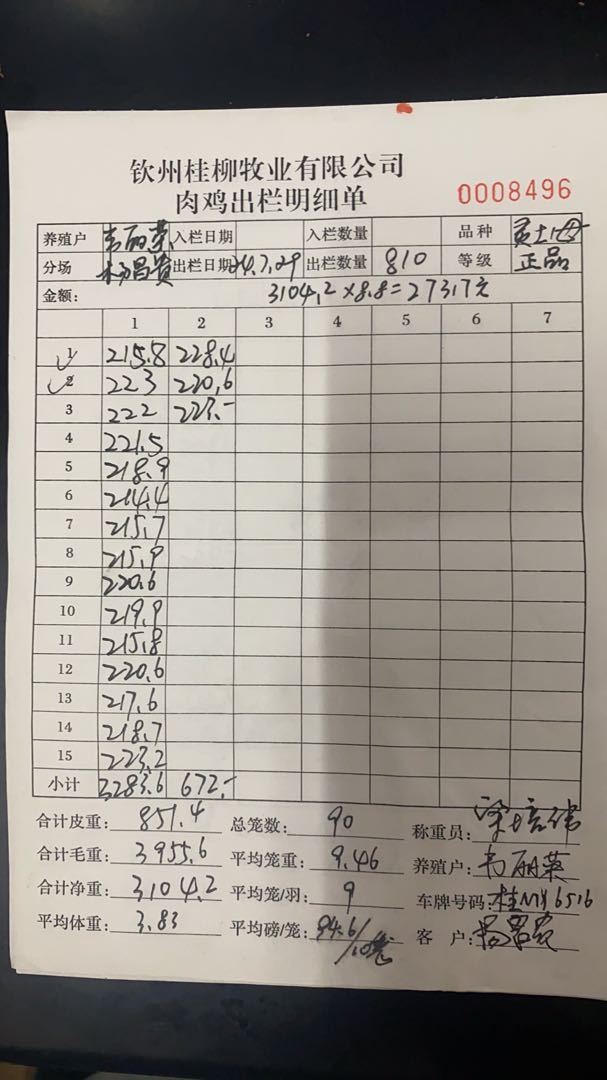 钦州桂柳牧业有限公司
肉鸡出栏明细单
0008496
养殖户 韦丽荣 入栏日期 入栏数量 品种 灵土
分场 杨昌贵 出栏日期 24.7.29 出栏数量 810 等级 正品
金额： 3104.2×8.8=27317元
1 2 3 4 5 6 7
1 215.8 228.4
2 223 220.6
3 222 223.-
4 221.5
5 218.9
6 214.4
7 215.7
8 215.9
9 220.6
10 219.9
11 215.8
12 220.6
13 217.6
14 218.7
15 223.2
小计 3283.6 672.-
合计皮重： 851.4 总笼数： 90 称重员： 梁培
合计毛重： 3955.6 平均笼重： 9.46 养殖户： 韦丽荣
合计净重： 3104.2 平均笼/羽： 9 车牌号码： 桂MX6516
平均体重： 3.83 平均磅/笼： 94.6/10笼 客户： 杨昌贵